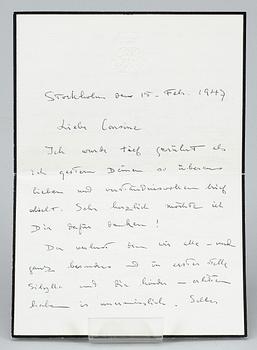 Stockholm den 15. Feb. 1947
Liebe Cousine
Ich wurde tief gerührt als
ich gestern Deinen so überaus
lieben und verständnisvollen Brief
erhielt. Sehr herzlich möchte ich
Dir dafür danken!
Der Verlust den wir alle – und
ganz besonders und in erster Stelle
Sibylla und die Kinder – erlitten
haben ist unermesslich. Selten